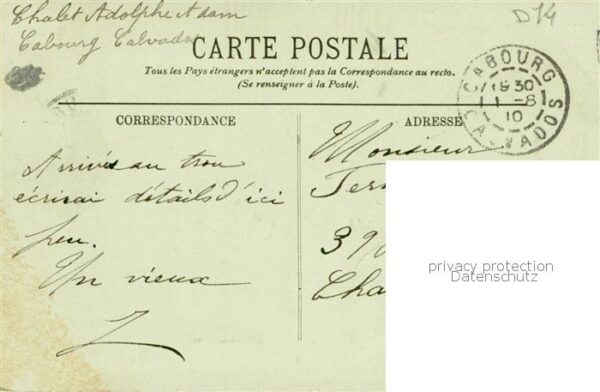 Chalet Adolphe Adam
Cabourg Calvados
D14
CARTE POSTALE
Tous les Pays étrangers n'acceptent pas la Correspondance au recto.
(Se renseigner à la Poste).
CABOURG
19 30
1-8
10
CALVADOS
CORRESPONDANCE
ADRESSE
Arrivés au trou
écrirai détails d'ici
peu.
Un vieux
Monsieur
Ter
39
Cha
privacy protection
Datenschutz